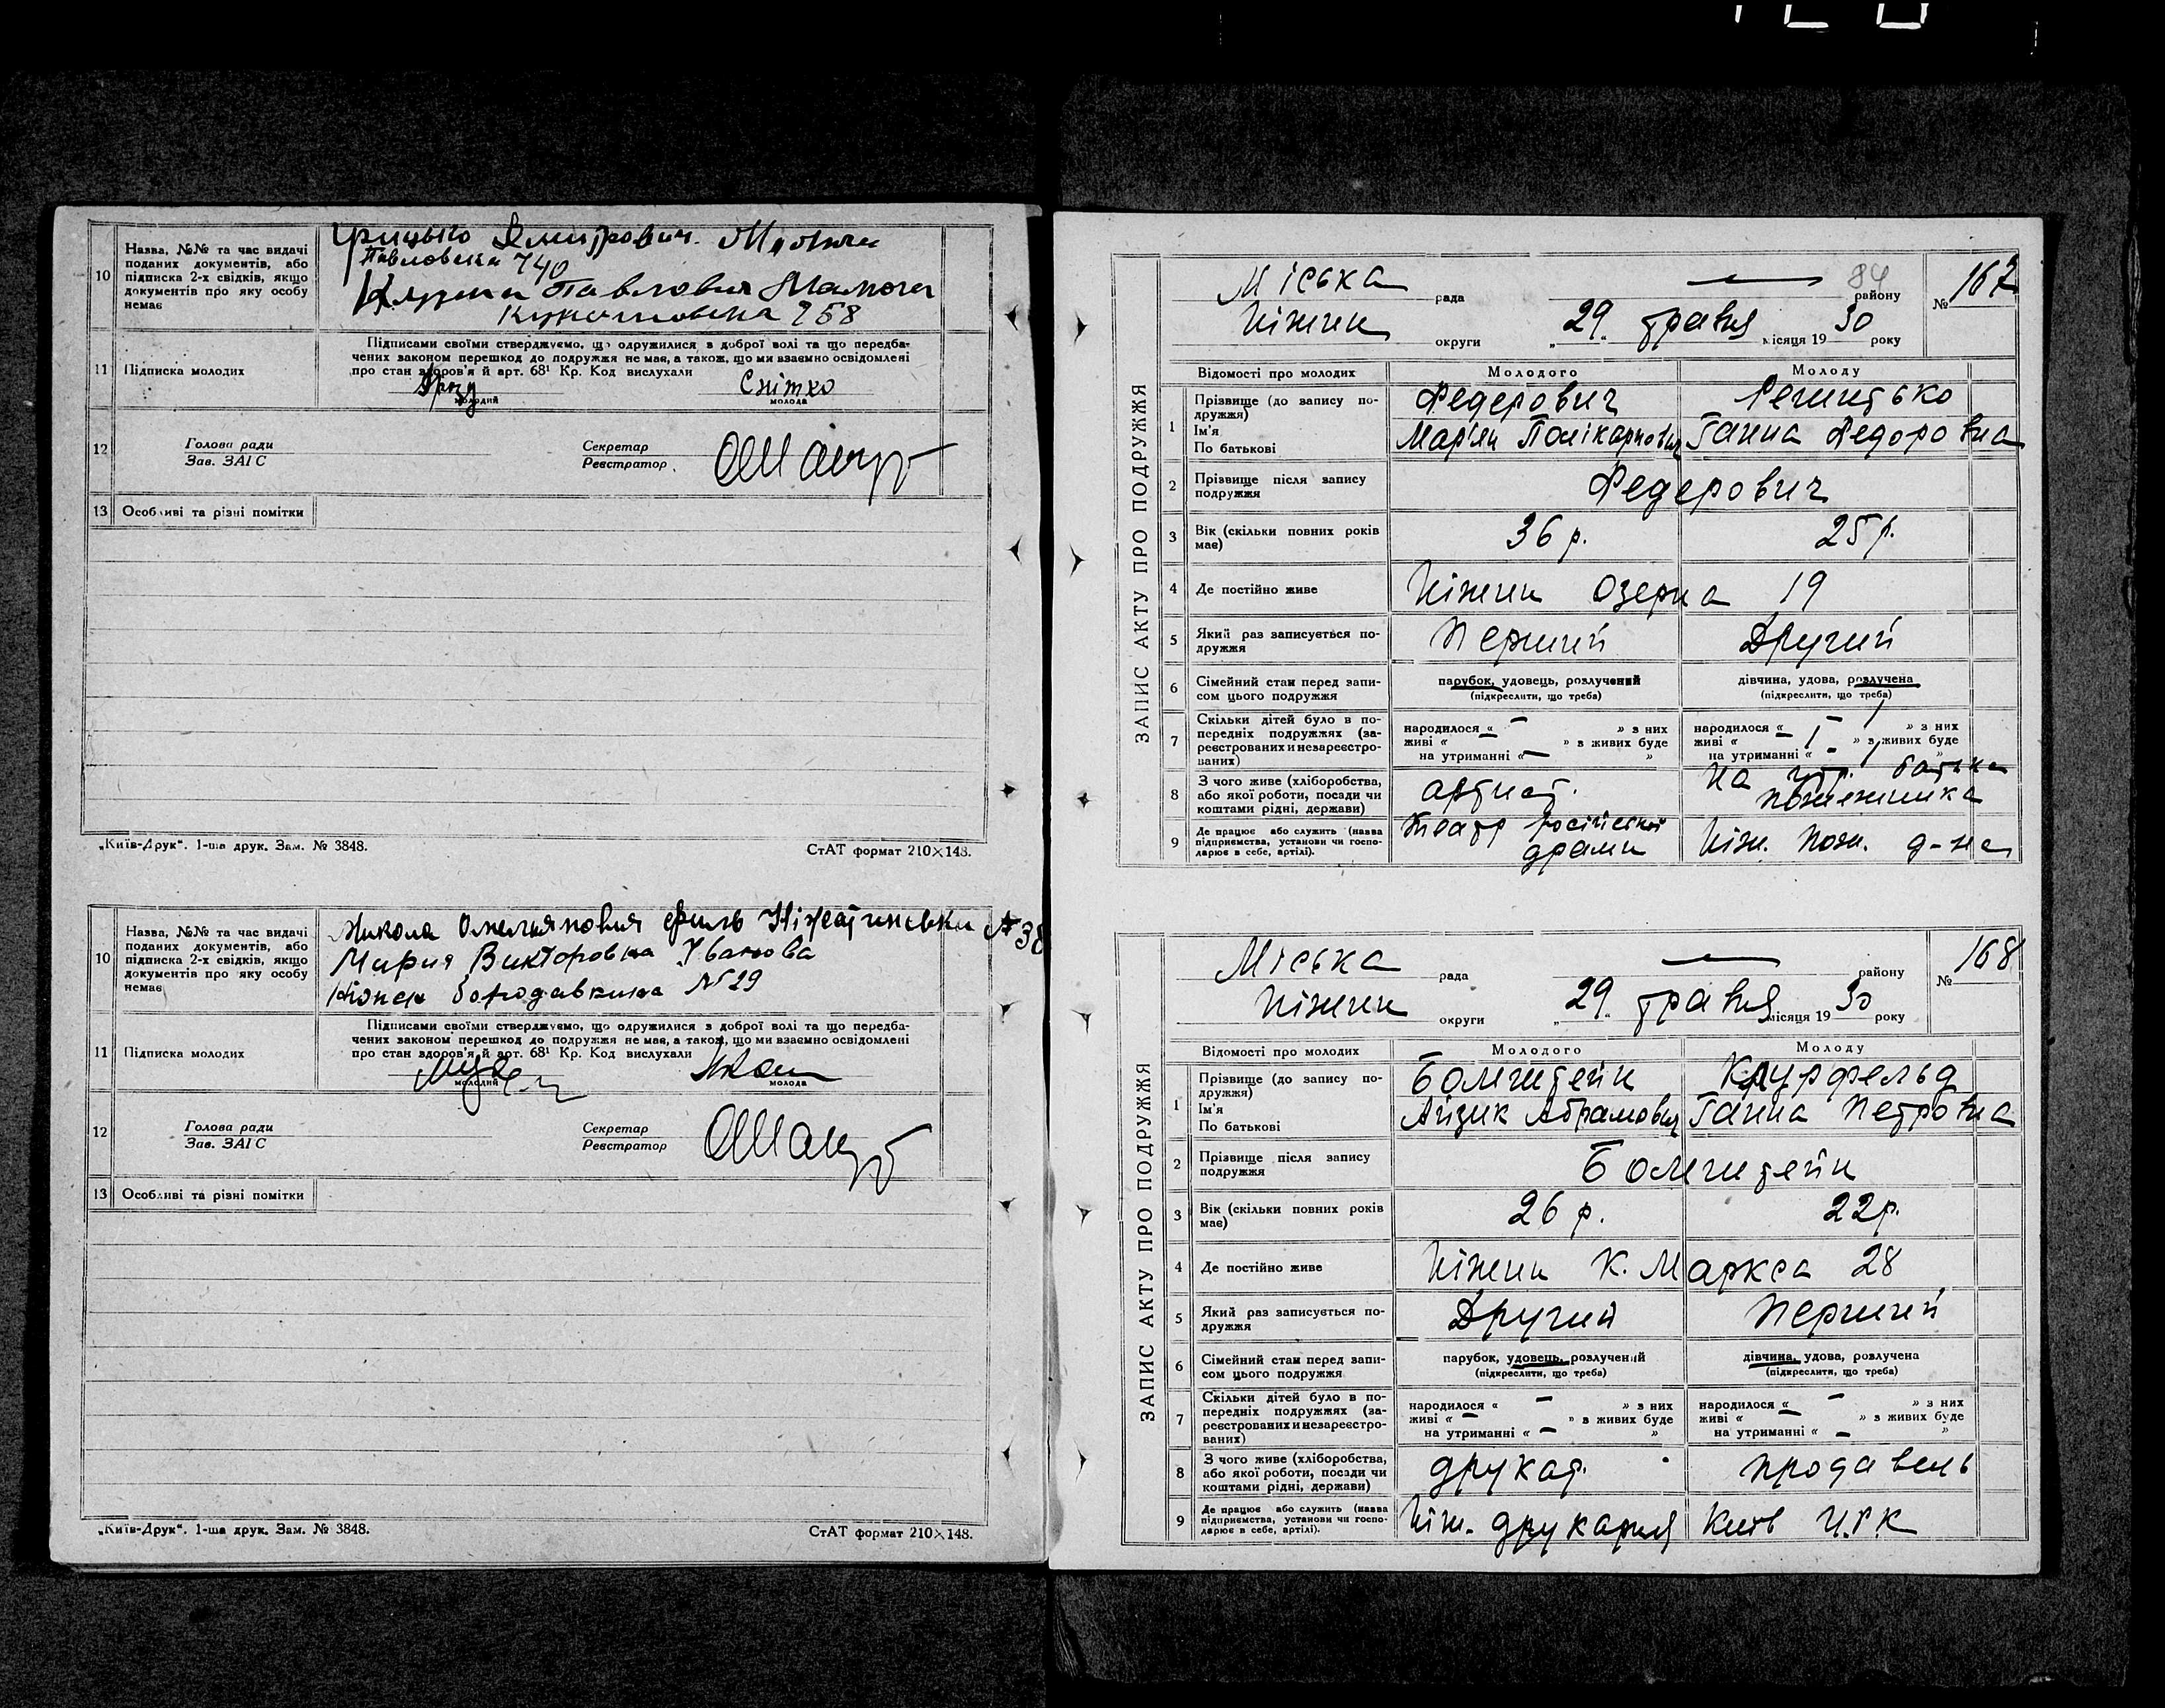 10 Назва, №№ та час видачі поданих документів, або підписка 2-х свідків, якщо документів про яку особу немає
Грицько Дмитрович
Павловська 740
Павловна
258
11 Підписка молодих
Підписами своїми стверджуємо, що одружилися з доброї волі та що передба-
чених законом перешкод до подружжя не має, а також, що ми взаємно освідомлені
про стан здоров'я й арт. 68¹ Кр. Код вислухали
молодий
Снітко
молода
12 Голова ради
Зав. ЗАГС
Секретар
Реєстратор
13 Особливі та різні помітки
„Київ-Друк“. 1-ша друк. Зам. № 3848.
СтАТ формат 210×148.
10 Назва, №№ та час видачі поданих документів, або підписка 2-х свідків, якщо документів про яку особу немає
Микола Омельянович Филь № 38
Мария Викторовна Иванова
№ 29
11 Підписка молодих
Підписами своїми стверджуємо, що одружилися з доброї волі та що передба-
чених законом перешкод до подружжя не має, а також, що ми взаємно освідомлені
про стан здоров'я й арт. 68¹ Кр. Код вислухали
молодий
молода
12 Голова ради
Зав. ЗАГС
Секретар
Реєстратор
13 Особливі та різні помітки
„Київ-Друк“. 1-ша друк. Зам. № 3848.
СтАТ формат 210×148.
84
ЗАПИС АКТУ ПРО ПОДРУЖЖЯ
Міська рада — району
№ 167
Ніжин округи „29“ травня місяця 1930 року
Відомості про молодих Молодого Молоду
1 Прізвище (до запису по-
дружжя)
Ім'я
По батькові
Федерович
Мар'ян Полікарпович Ганна Федоровна
2 Прізвище після запису
подружжя
Федерович
3 Вік (скільки повних років
має)
36 р. 25 р.
4 Де постійно живе Ніжин Озерна 19
5 Який раз записується по-
дружжя
Перший Другий
6 Сімейний стан перед запи-
сом цього подружжя
парубок, удовець, розлучений дівчина, удова, розлучена
(підкреслити, що треба) (підкреслити, що треба)
7 Скільки дітей було в по-
передніх подружжях (за-
реєстрованих и незареєстро-
ваних)
народилося « — » з них народилося « — 1 » з них
живі « — » з живих буде живі « 1 » з живих буде
на утриманні « — » на утриманні « — 1 »
8 З чого живе (хліборобства,
або якої роботи, посади чи
коштами рідні, держави)
артист. На утр. батька
пожежника
9 Де працює або служить (назва
підприємства, установи чи госпо-
дарює в себе, артілі).
Театр російської
драми
Ніж. Пож. д-на
ЗАПИС АКТУ ПРО ПОДРУЖЖЯ
Міська рада — району
№ 168
Ніжин округи „29“ травня місяця 1930 року
Відомості про молодих Молодого Молоду
1 Прізвище (до запису по-
дружжя)
Ім'я
По батькові
Бомштейн
Айзик Абрамович Ганна Петровна
2 Прізвище після запису
подружжя
Бомштейн
3 Вік (скільки повних років
має)
26 р. 22 р.
4 Де постійно живе Ніжин К. Маркса 28
5 Який раз записується по-
дружжя
Другий Перший
6 Сімейний стан перед запи-
сом цього подружжя
парубок, удовець, розлучений дівчина, удова, розлучена
(підкреслити, що треба) (підкреслити, що треба)
7 Скільки дітей було в по-
передніх подружжях (за-
реєстрованих и незареєстро-
ваних)
народилося « — » з них народилося « — » з них
живі « — » з живих буде живі « — » з живих буде
на утриманні « — » на утриманні « — »
8 З чого живе (хліборобства,
або якої роботи, посади чи
коштами рідні, держави)
друкар. продавець
9 Де працює або служить (назва
підприємства, установи чи госпо-
дарює в себе, артілі).
Ніж. друкарня Київ Ц.Р.К